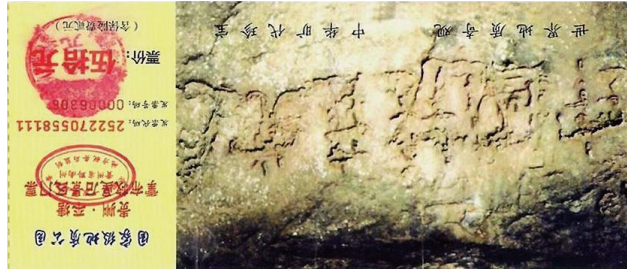 国家级地质公园
贵州·平塘
掌布救星石景区门票
发票代码: 252270558111
发票号码: 00006306
票价: 伍拾元
(含保险费贰元)
世界地质奇观 中华旷代珍宝